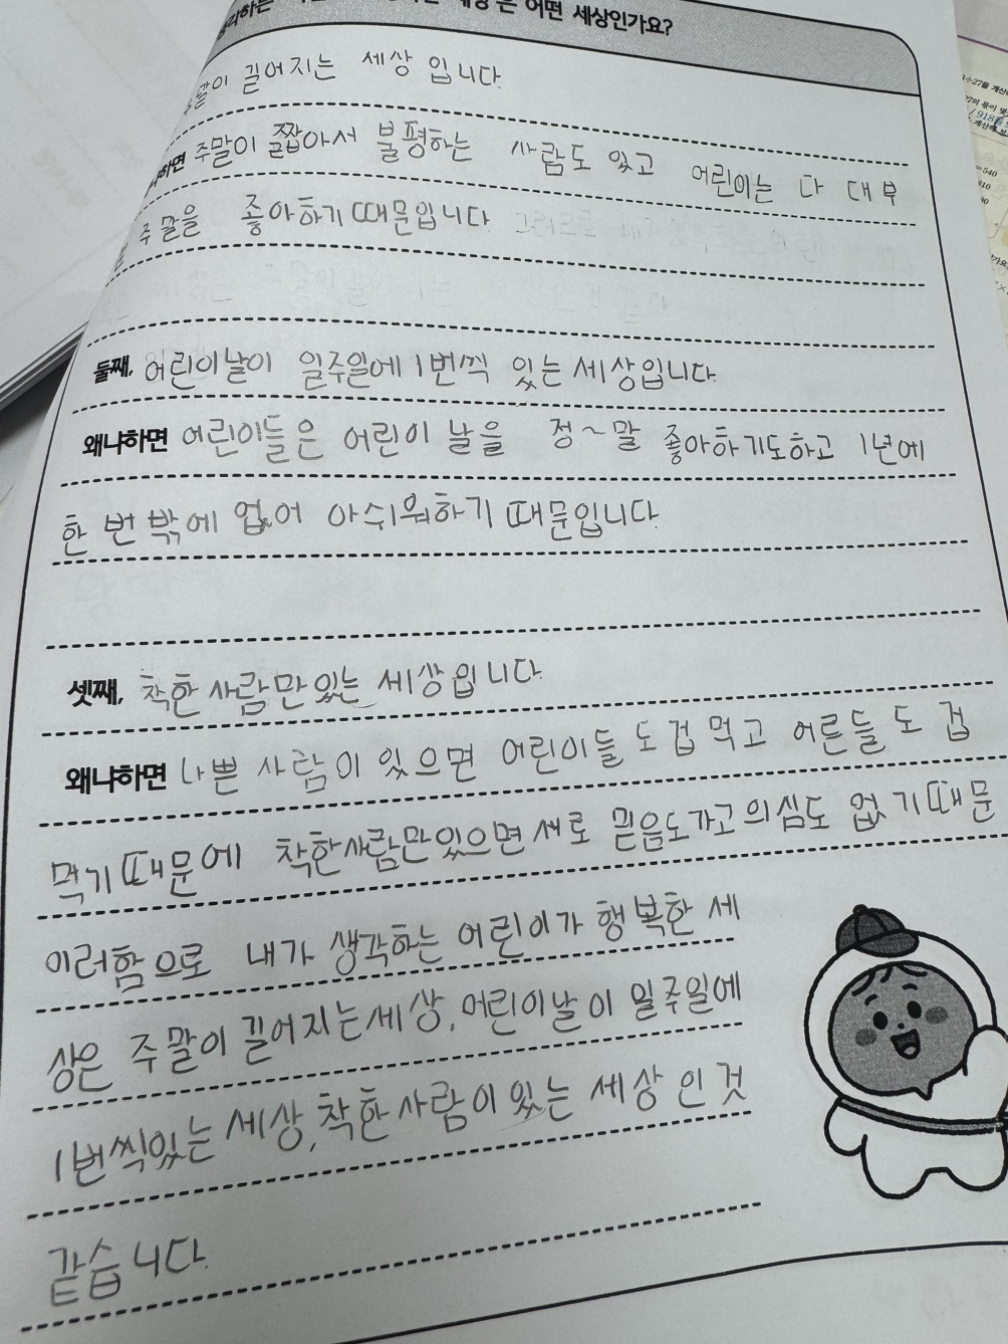 어떤 세상인가요?
길어지는 세상 입니다.
하면 주말이 짧아서 불평하는 사람도 있고 어린이는 다 대부
주말을 좋아하기 때문입니다.
둘째, 어린이날이 일주일에 1번씩 있는 세상입니다.
왜냐하면 어린이들은 어린이 날을 정~말 좋아하기도하고 1년에
한 번 밖에 없어 아쉬워하기 때문입니다.
셋째, 착한 사람만 있는 세상입니다.
왜냐하면 나쁜 사람이 있으면 어린이들 도 겁 먹고 어른들 도 겁
먹기 때문에 착한사람만있으면 새로 믿음도가고 의심도 없기때문
이러함으로 내가 생각하는 어린이가 행복한 세
상은 주말이 길어지는세상, 어린이날이 일주일에
1번씩있는 세상, 착한사람이 있는 세상 인 것
같습니다.